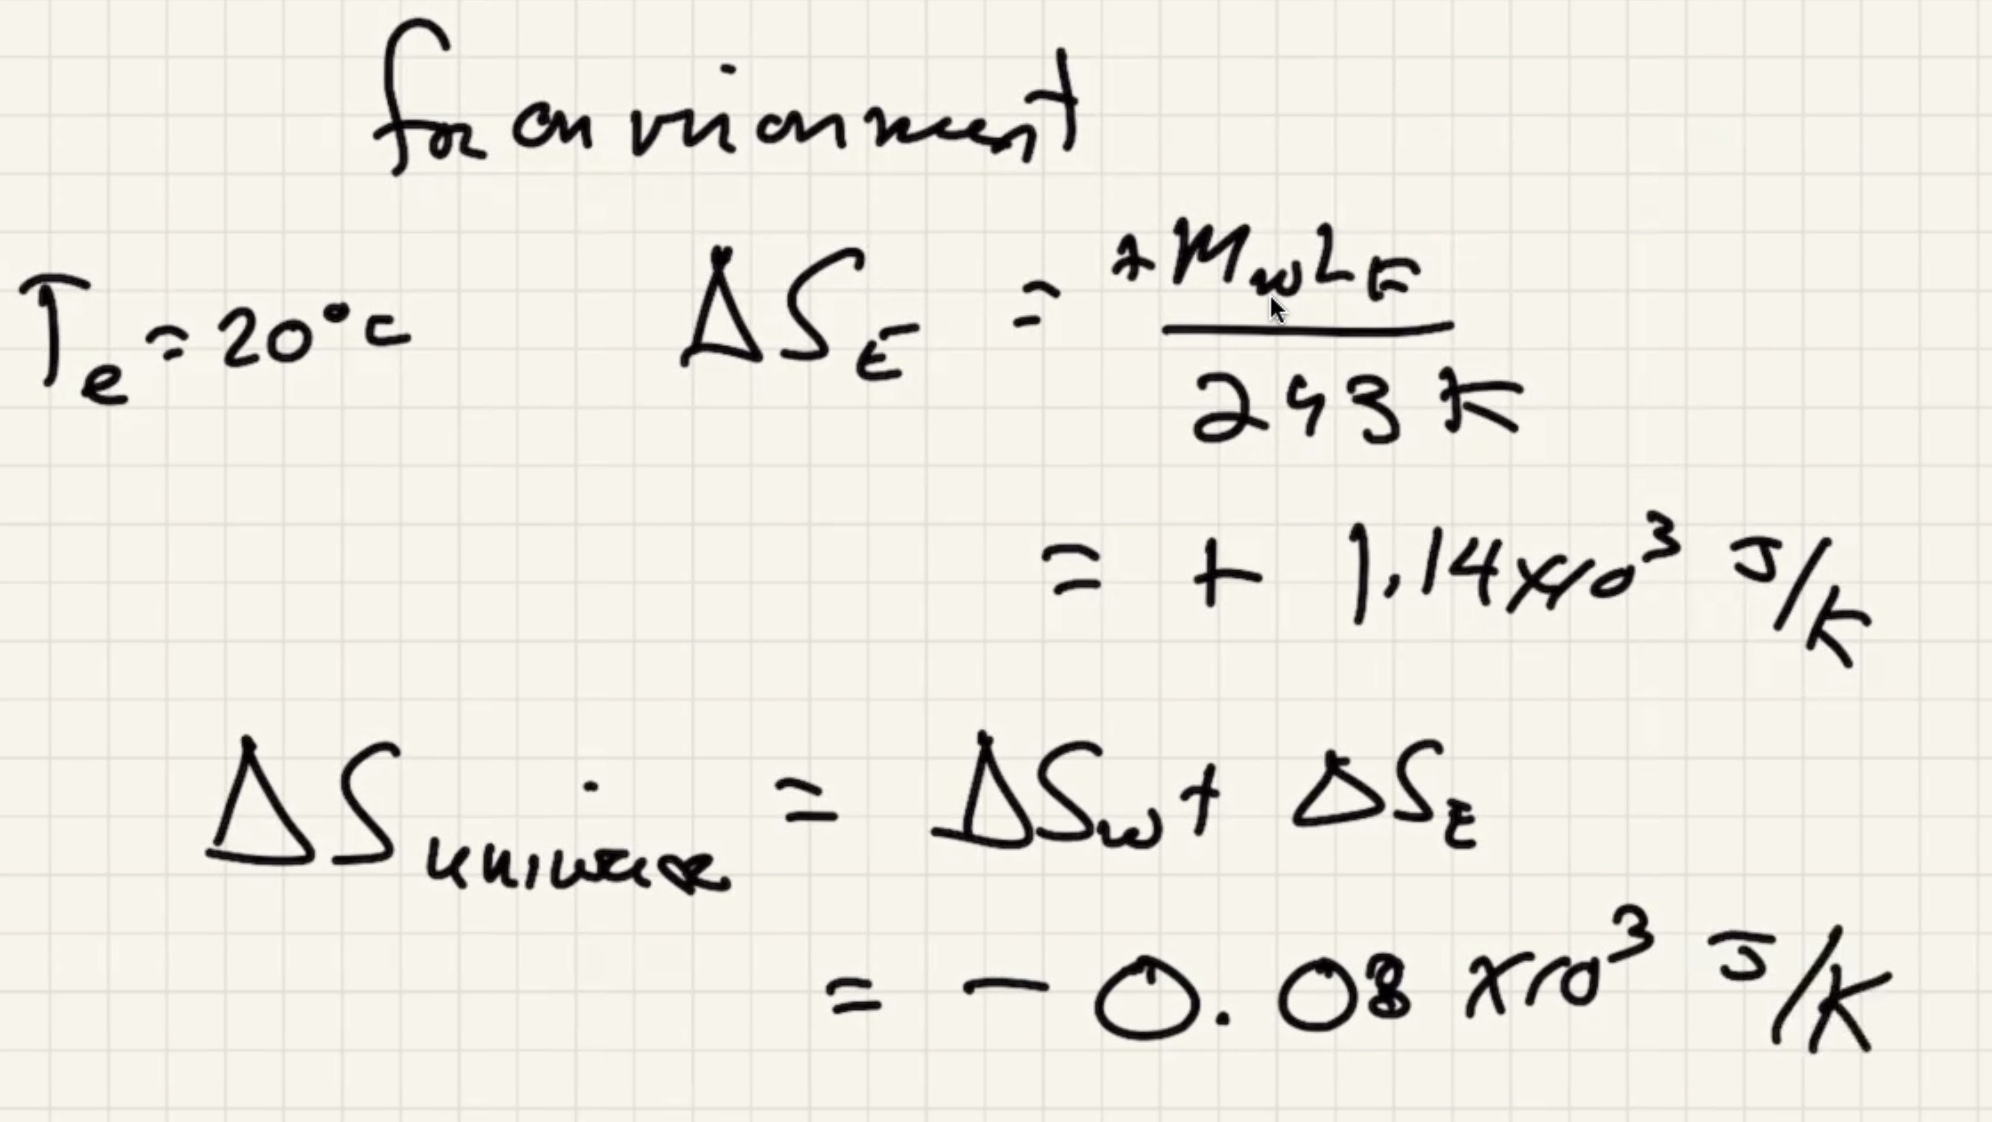 for envrionment
T_e = 20°C ΔS_E = +M_w L_F / 293 K
= + 1.14 x 10^3 J/K
ΔS_universe = ΔS_w + ΔS_E
= - 0.08 x 10^3 J/K